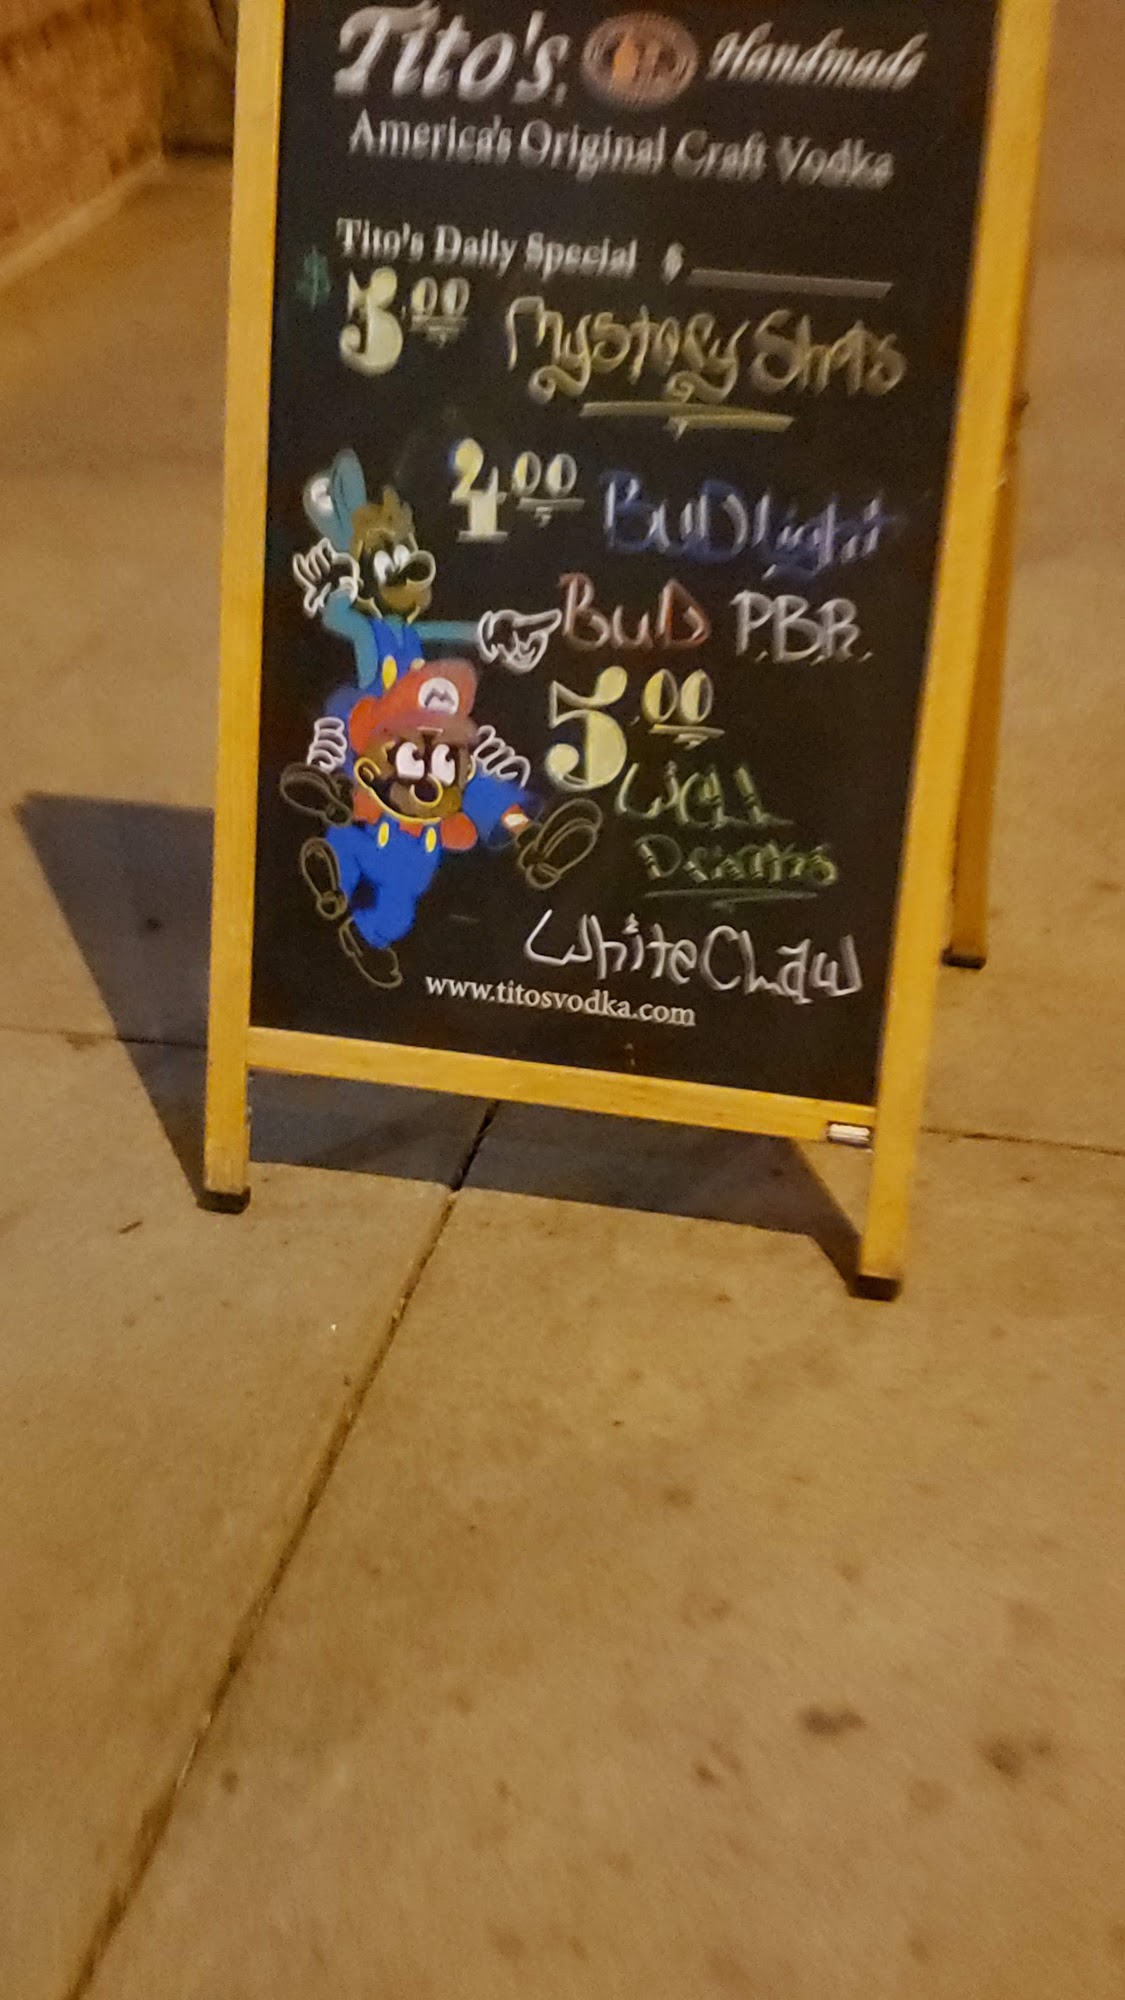 Tito's Handmade
America's Original Craft Vodka
Tito's Daily Special $
$ 3.00 Mystery Shots
4.00 Bud Light
Bud P.B.R.
5.00 Well
Drinks
White Claw
www.titosvodka.com